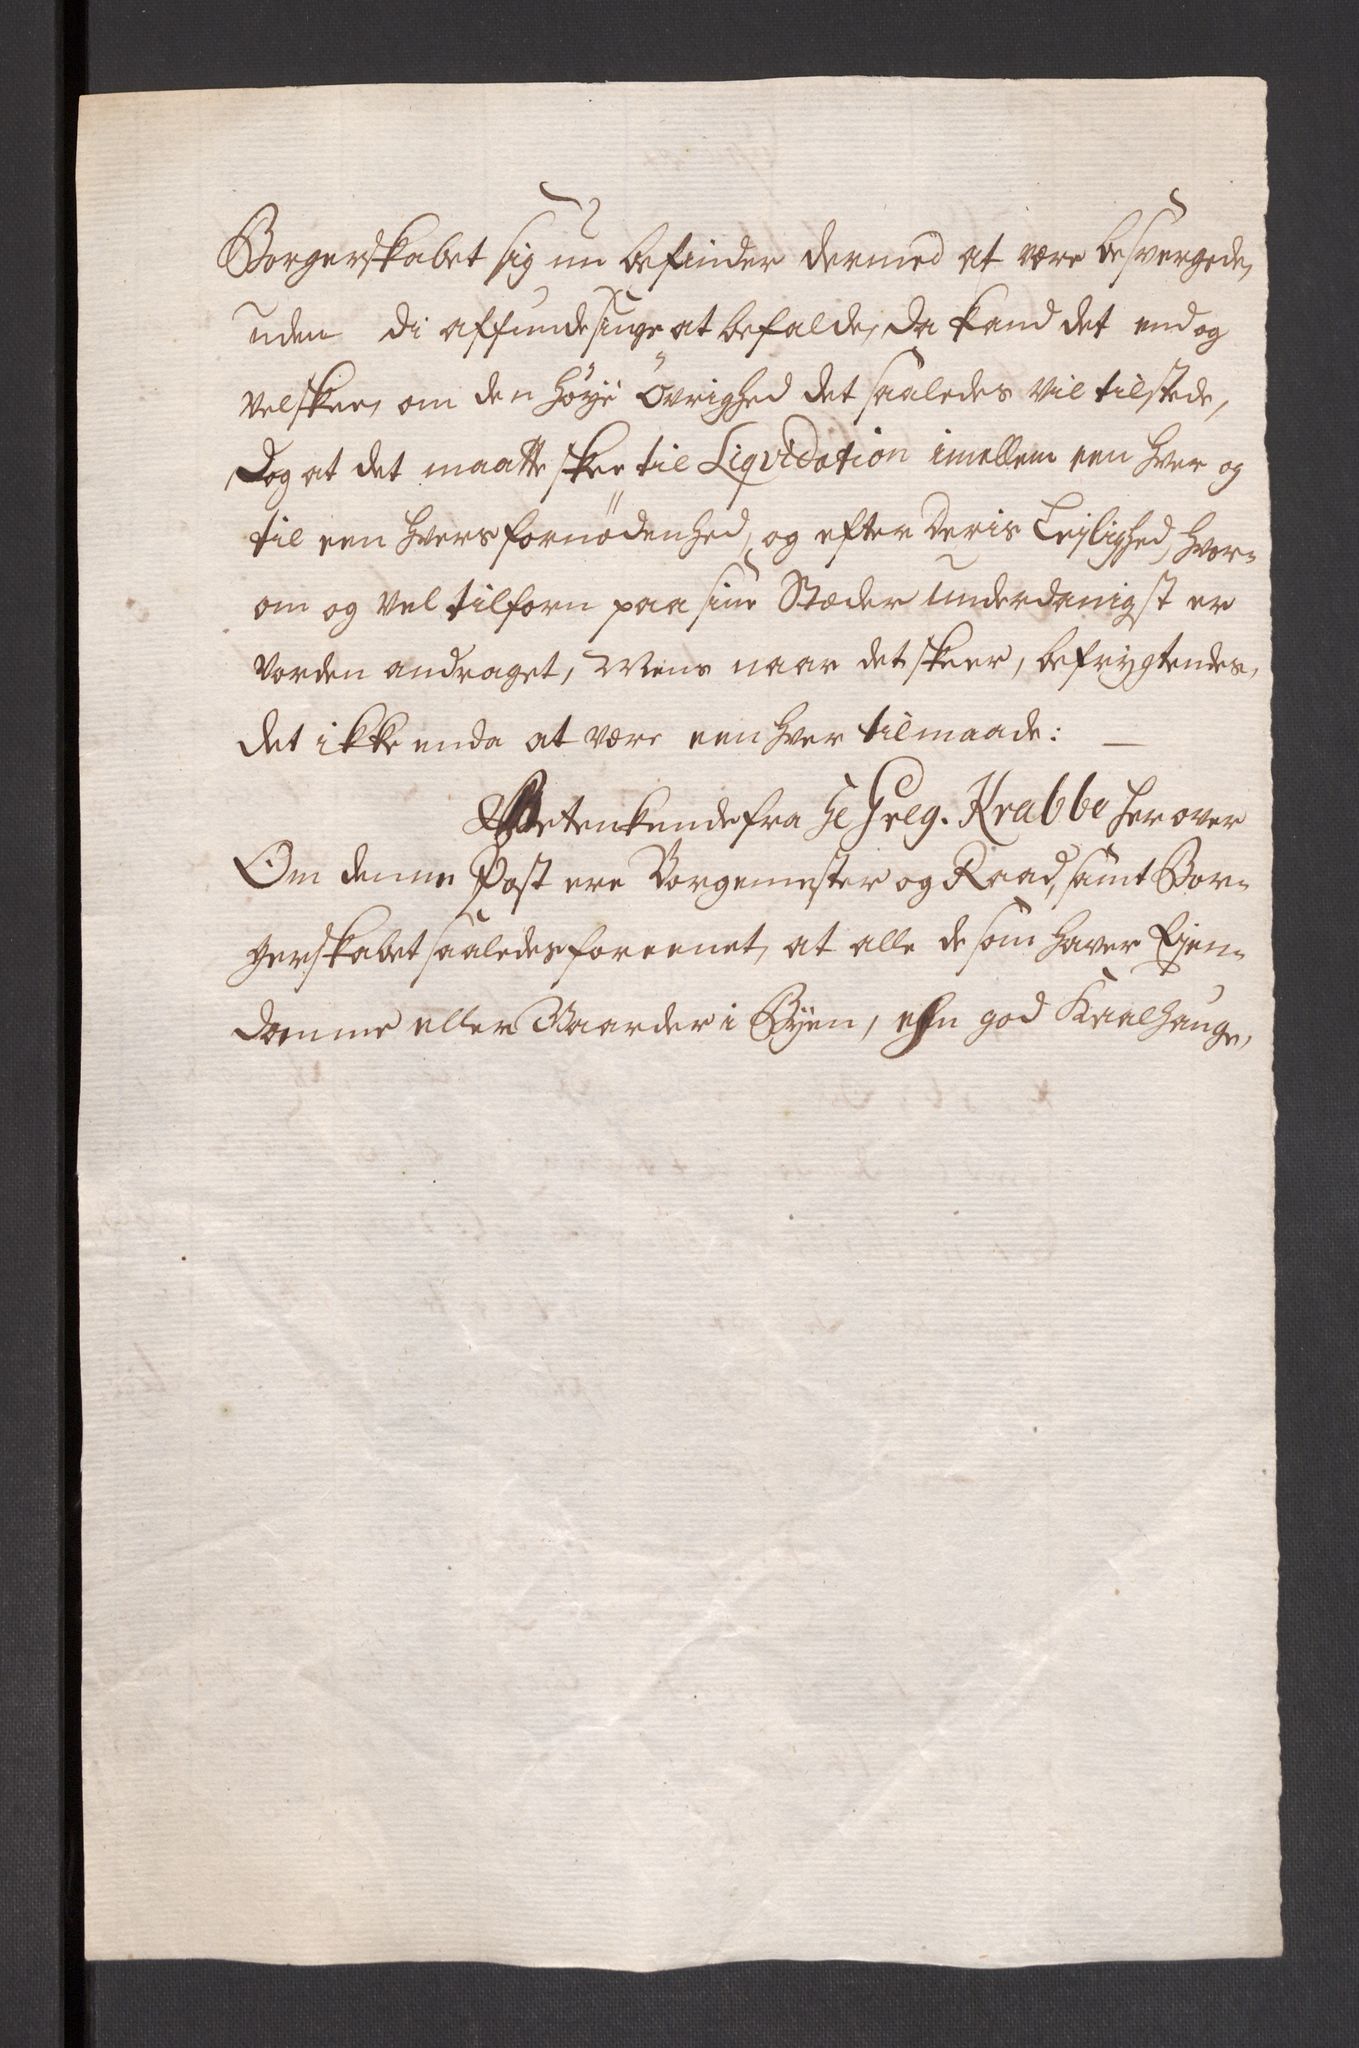 Borgerskabet sig nu befinder dermed at være besvergede,
uden di affundes at befalde, da kand det end og
vel skee, om den höye Övrighed det saaledes vil tilstede,
Dog at det maatte skee til Liqvidation imellem een hver og
til een hvers fornödenhed, og efter Deris Lejlighed, hvor-
om og vel tilforn paa sine Stæder underdanigst er
vorden andraget, Mens naar det skeer, befrygtendes,
det ikke enda at være een hver tilmaade: —
Betenkende fra H Greg. Krabbe her over
Om denne Post ere Borgemester og Raad, samt Bor-
gerskabet saaledes foreenet, at alle de som haver Ejen-
domme eller Gaarder i Byen, een god Kaalhauge,